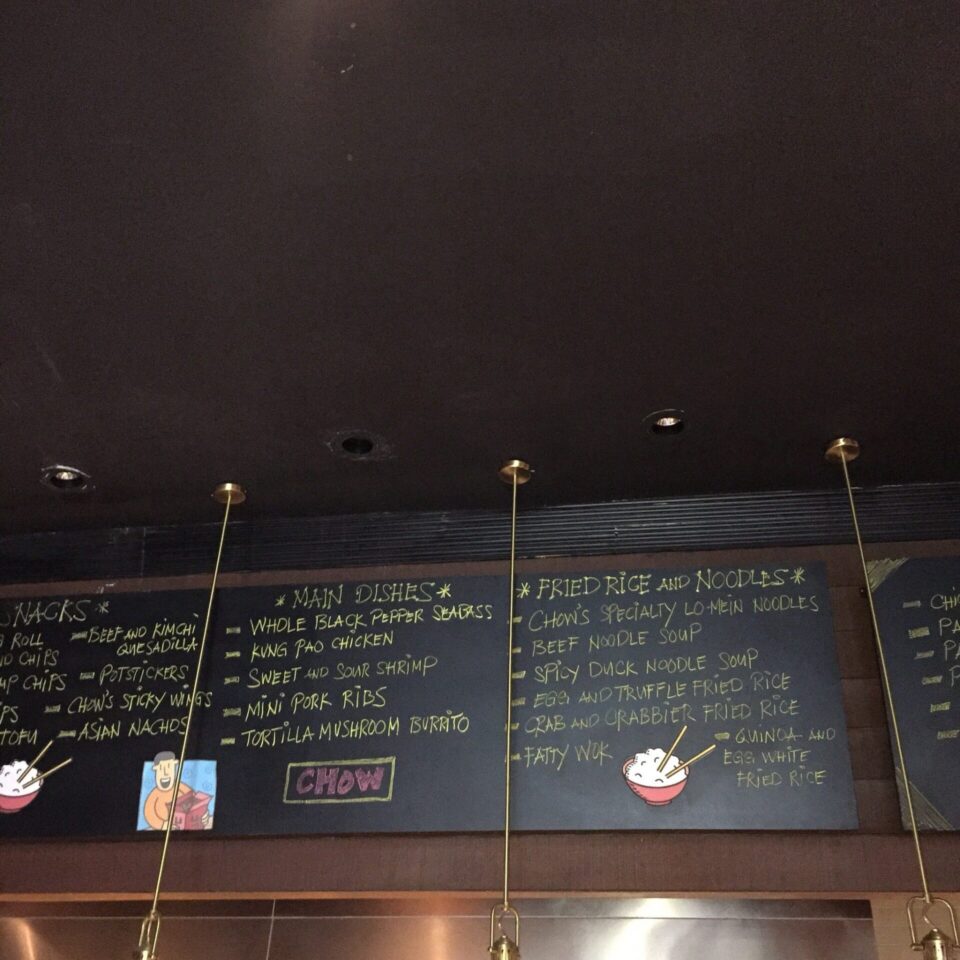 SNACKS *
ROLL
CHIPS
CHIPS
TOFU
BEEF AND KIMCHI
QUESADILLA
POTSTICKERS
CHOW'S STICKY WINGS
ASIAN NACHOS
* MAIN DISHES *
WHOLE BLACK PEPPER SEABASS
KUNG PAO CHICKEN
SWEET AND SOUR SHRIMP
MINI PORK RIBS
TORTILLA MUSHROOM BURRITO
CHOW
* FRIED RICE AND NOODLES *
CHOW'S SPECIALTY LO-MEIN NOODLES
BEEF NOODLE SOUP
SPICY DUCK NOODLE SOUP
EGG AND TRUFFLE FRIED RICE
CRAB AND CRABBIER FRIED RICE
FATTY WOK
QUINOA AND
EGG WHITE
FRIED RICE